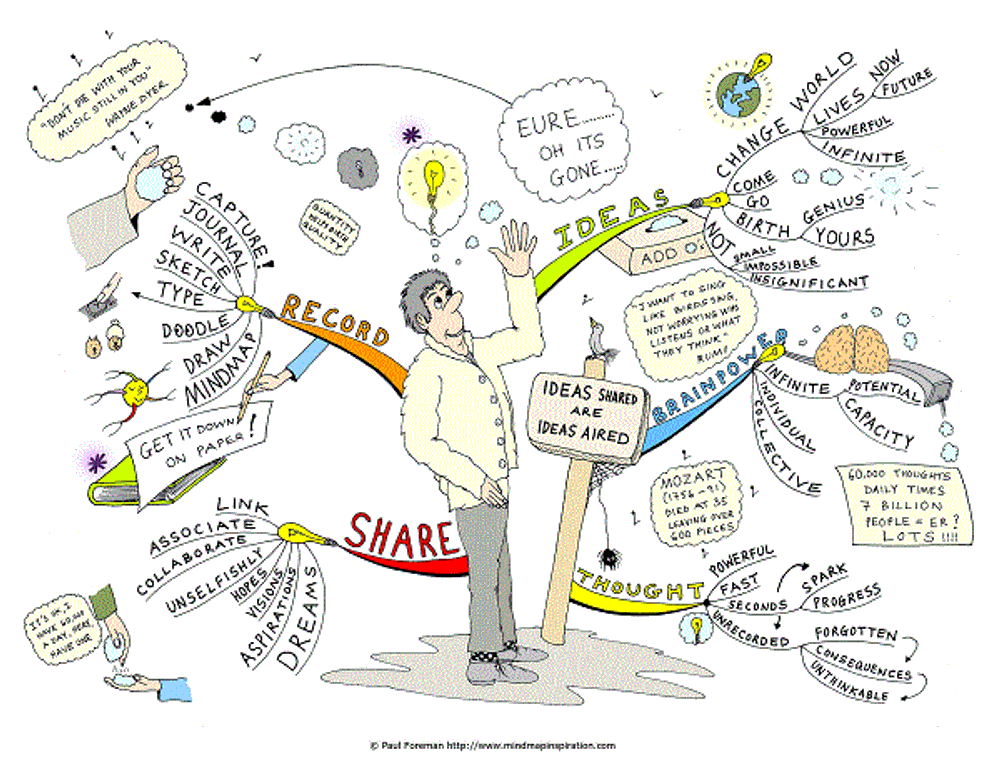 "DON'T DIE WITH YOUR
MUSIC STILL IN YOU"
WAYNE DYER
EURE.........
OH ITS
GONE.....
QUANTITY
QUALITY
IDEAS
CHANGE WORLD
LIVES
NOW
FUTURE
POWERFUL
INFINITE
COME
GO
BIRTH
GENIUS
YOURS
NOT
SMALL
IMPOSSIBLE
INSIGNIFICANT
ADD
RECORD
CAPTURE!
JOURNAL
WRITE
SKETCH
TYPE
DOODLE
DRAW
MINDMAP
GET IT DOWN
ON PAPER!
"I WANT TO SING
LIKE BIRDS SING,
NOT WORRYING WHO
LISTENS OR WHAT
THEY THINK"
RUMI
IDEAS SHARED
ARE
IDEAS AIRED
BRAINPOWER
INFINITE
POTENTIAL
CAPACITY
INDIVIDUAL
COLLECTIVE
60,000 THOUGHTS
DAILY TIMES
7 BILLION
PEOPLE = ER?
LOTS !!!!
MOZART
(1756-91)
DIED AT 35
LEAVING OVER
600 PIECES
SHARE
LINK
ASSOCIATE
COLLABORATE
UNSELFISHLY
HOPES
VISIONS
ASPIRATIONS
DREAMS
THOUGHT
POWERFUL
FAST
SECONDS
SPARK
PROGRESS
UNRECORDED
FORGOTTEN
CONSEQUENCES
UNTHINKABLE
IT'S OK I
HAVE 60,000
A DAY, YOU
HAVE ONE
© Paul Foreman http://www.mindmapinspiration.com